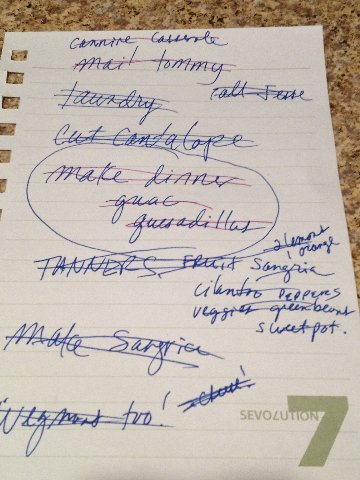 cannine casserole
mail tommy
laundry call Jesse
cut cantalope
make dinner
guac
quesadillas
2 lemons
1 orange
TANNERS FRUIT Sangria
cilantro PEPPERS
veggies green beans
sweet pot.
Make Sangria
too!
SEVOLUTION
7